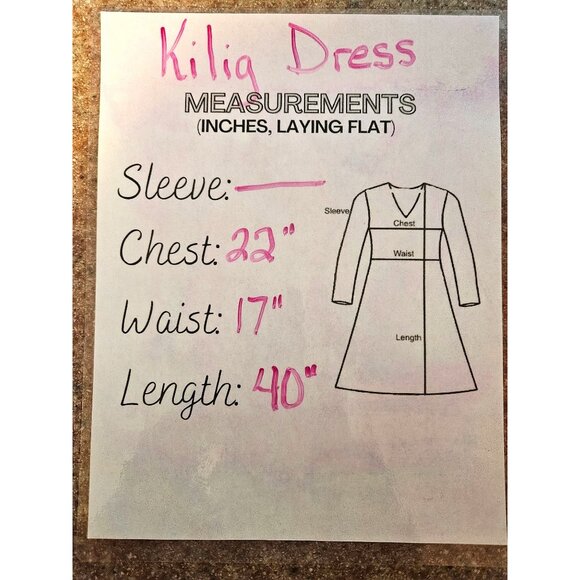 Kiliq Dress
MEASUREMENTS
(INCHES, LAYING FLAT)
Sleeve: —
Chest: 22"
Waist: 17"
Length: 40"
Sleeve
Chest
Waist
Length